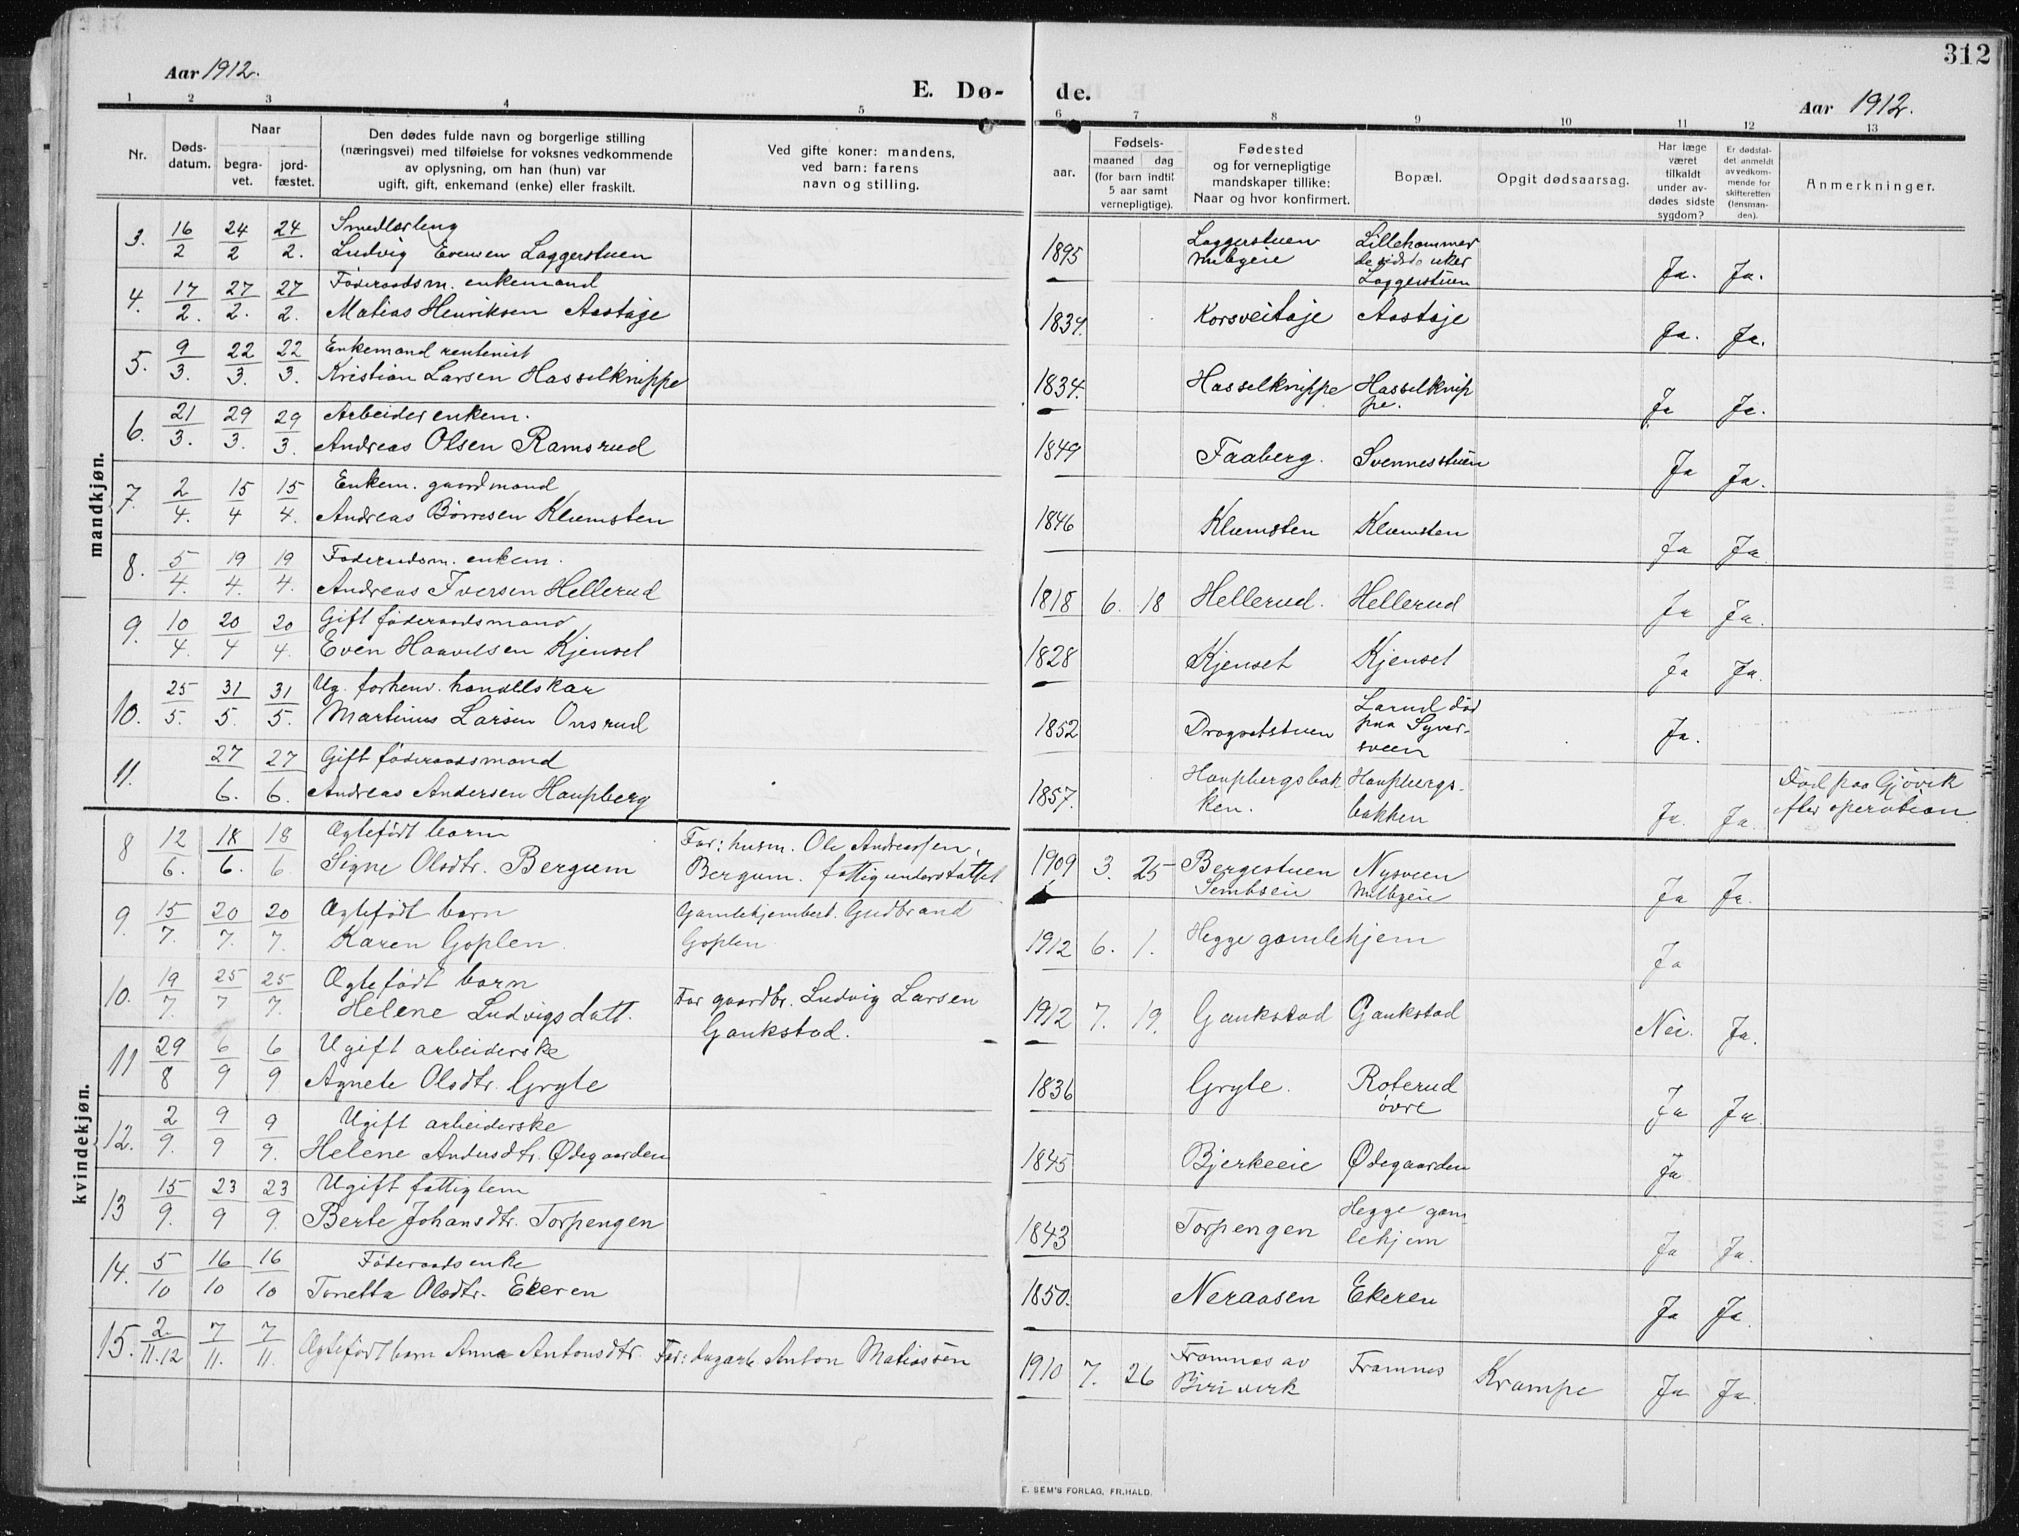 312
Aar 1912.
E. Dø- de.
Aar 1912.
1 2 3 4 5 6 7 8 9 10 11 12 13
Nr.
Døds-
datum.
Naar
begra-
vet.
jord-
fæstet.
Den dødes fulde navn og borgerlige stilling
(næringsvei) med tilføielse for voksnes vedkommende
av oplysning, om han (hun) var
ugift, gift, enkemand (enke) eller fraskilt.
Ved gifte koner: mandens,
ved barn: farens
navn og stilling.
Fødsels-
aar.
maaned dag
(for barn indtil
5 aar samt
vernepligtige).
Fødested
og for vernepligtige
mandskaper tillike:
Naar og hvor konfirmert.
Bopæl.
Opgit dødsaarsag.
Har læge
været
tilkaldt
under av-
dødes sidste
sygdom?
Er dødsfal-
det anmeldt
av vedkom-
mende for
skifteretten
(lensman-
den).
Anmerkninger.
mandkjøn.
3. 16/2 24/2 24/2. Smedlærling
Ludvig Evensen Laggerstuen
1895 Laggerstuen
Mæhlyeie Lillehammer
de sidste uker
Laggerstuen Ja. Ja.
4. 17/2. 27/2. 27/2. Føderaadsm. enkemand
Matias Henriksen Aastøje
1834. Korsveitøje Aastøje Ja. Ja.
5. 9/3. 22/3. 22/3. Enkemand rentenist
Kristian Larsen Hasselknippe
1834. Hasselknippe Hasselknip
pe. Ja Ja.
6. 21/3. 29/3. 29/3. Arbeider enkem.
Andreas Olsen Ramsrud
1849 Faaberg. Svennesstuen Ja Ja.
7. 2/4. 15/4 15/4. Enkem. gaardmand
Andreas Børresen Klumsten
1846 Klumsten Klumsten Ja Ja.
8. 5/4. 19/4. 19/4. Føderaadsm. enkem.
Andreas Iversen Hellerud
1818 6. 18 Hellerud. Hellerud Ja Ja.
9. 10/4. 20/4 20/4. Gift føderaadsmand
Even Haavelsen Kjenset
1828 Kjenset Kjenset Ja Ja.
10. 25/5. 31/5. 31/5. Ug. forhenv. handelskar
Martinus Larsen Onsrud
1852 Drogsetstuen Larud død
paa Syver-
sveen Ja.
11. 27/6. 27/6. Gift føderaadsmand
Andreas Andersen Haupberg
1857. Haupbergsbak
ken. Haupbergs-
bakken Ja. Ja. Død paa Gjøvik
efter operation.
kvindekjøn.
8 12/6. 18/6. 18/6. Ægtefødt barn
Signe Olsdtr. Bergum
Far: husm. Ole Andreassen,
Bergum. fattigunderstøttet
1909 3. 25 Bergestuen
Sembseie Nysveen
Mælbyeie Ja Ja.
9. 15/7. 20/7. 20/7. Ægtefødt barn
Karen Goplen.
Gamlehjembest. Gudbrand
Goplen
1912 6. 1. Hegge gamlehjem Ja
10. 19/7. 25/7 25/7. Ægtefødt barn
Helene Ludvigsdatt.
Far gaardbr. Ludvig Larsen
Gaukstad.
1912 7. 19. Gaukstad Gaukstad Nei. Ja.
11 29/8 6/9 6/9. Ugift arbeiderske
Agnete Olsdtr. Gryte
1836 Gryte. Roterud
øvre Ja Ja.
12. 2/9. 9/9 9/9. Ugift arbeiderske
Helene Andersdtr. Ødegaarden
1845 Bjerkeeie Ødegaarden Ja
13 15/9. 23/9 23/9. Ugift fattiglem
Berte Johansdtr. Torpengen
1843 Torpengen Hegge gam
lehjem Ja Ja.
14. 5/10 16/10 16/10 Føderaadsenke
Tonetta Olsdtr. Ekeren
1850. Neraasen Ekeren Ja Ja.
15. 2/11.12 7/11. 7/11. Ægtefødt barn Anna Antonsdtr. Far: dagarb. Anton Matiassen
1910 7. 26 Framnes av
Biri verk Framnes Krampe Ja Ja.
E. SEM'S FORLAG, FR.HALD.